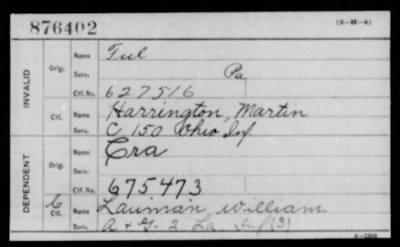 876402
(3-M-4)
INVALID
Orig.
Name Ful
Serv. Pa
Ctf. No. 627516
Ctf.
Name Harrington, Martin
Serv. C 150 Ohio Inf
DEPENDENT
Orig.
Name Era
Serv.
Ctf. No. 675473
C
Ctf.
Name Lauman, William
Serv. A & G. 2 La. Inf (3)